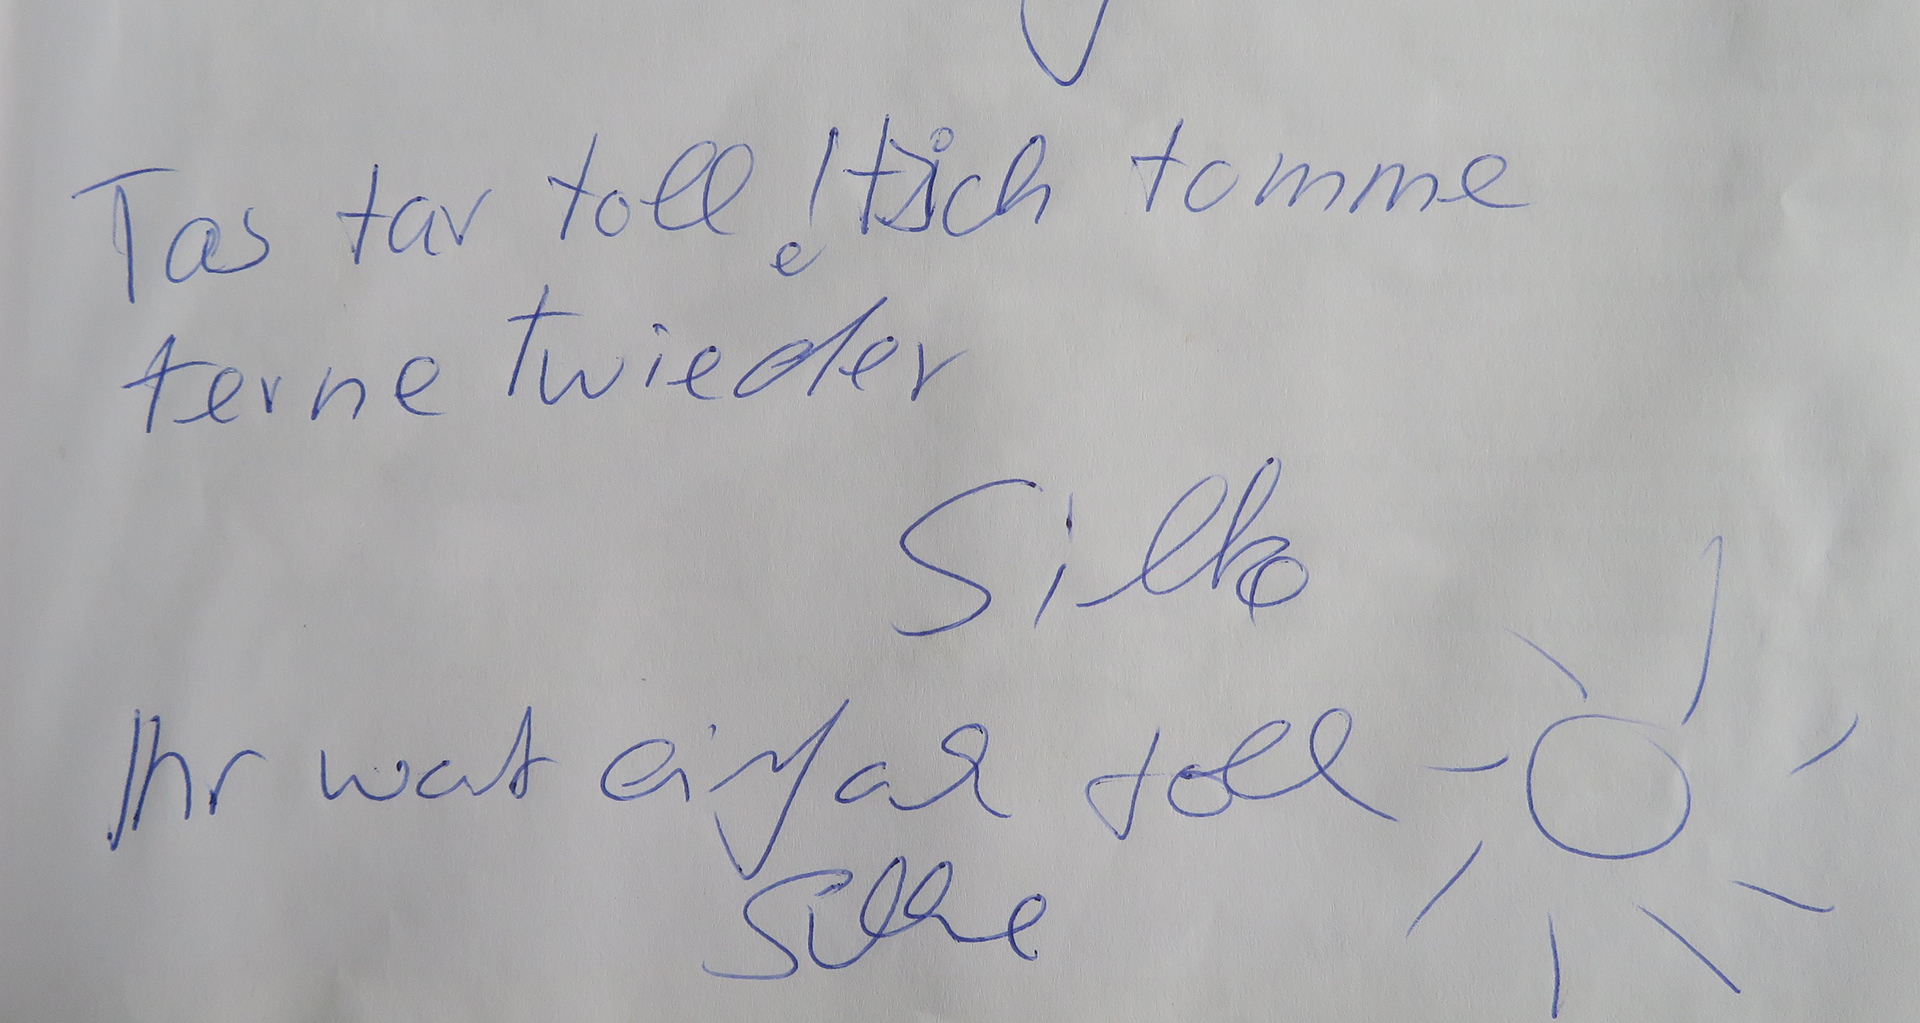 Tas tar toll! Isich tomme
terne twieder
Silke
Ihr wart einfach toll
Silke